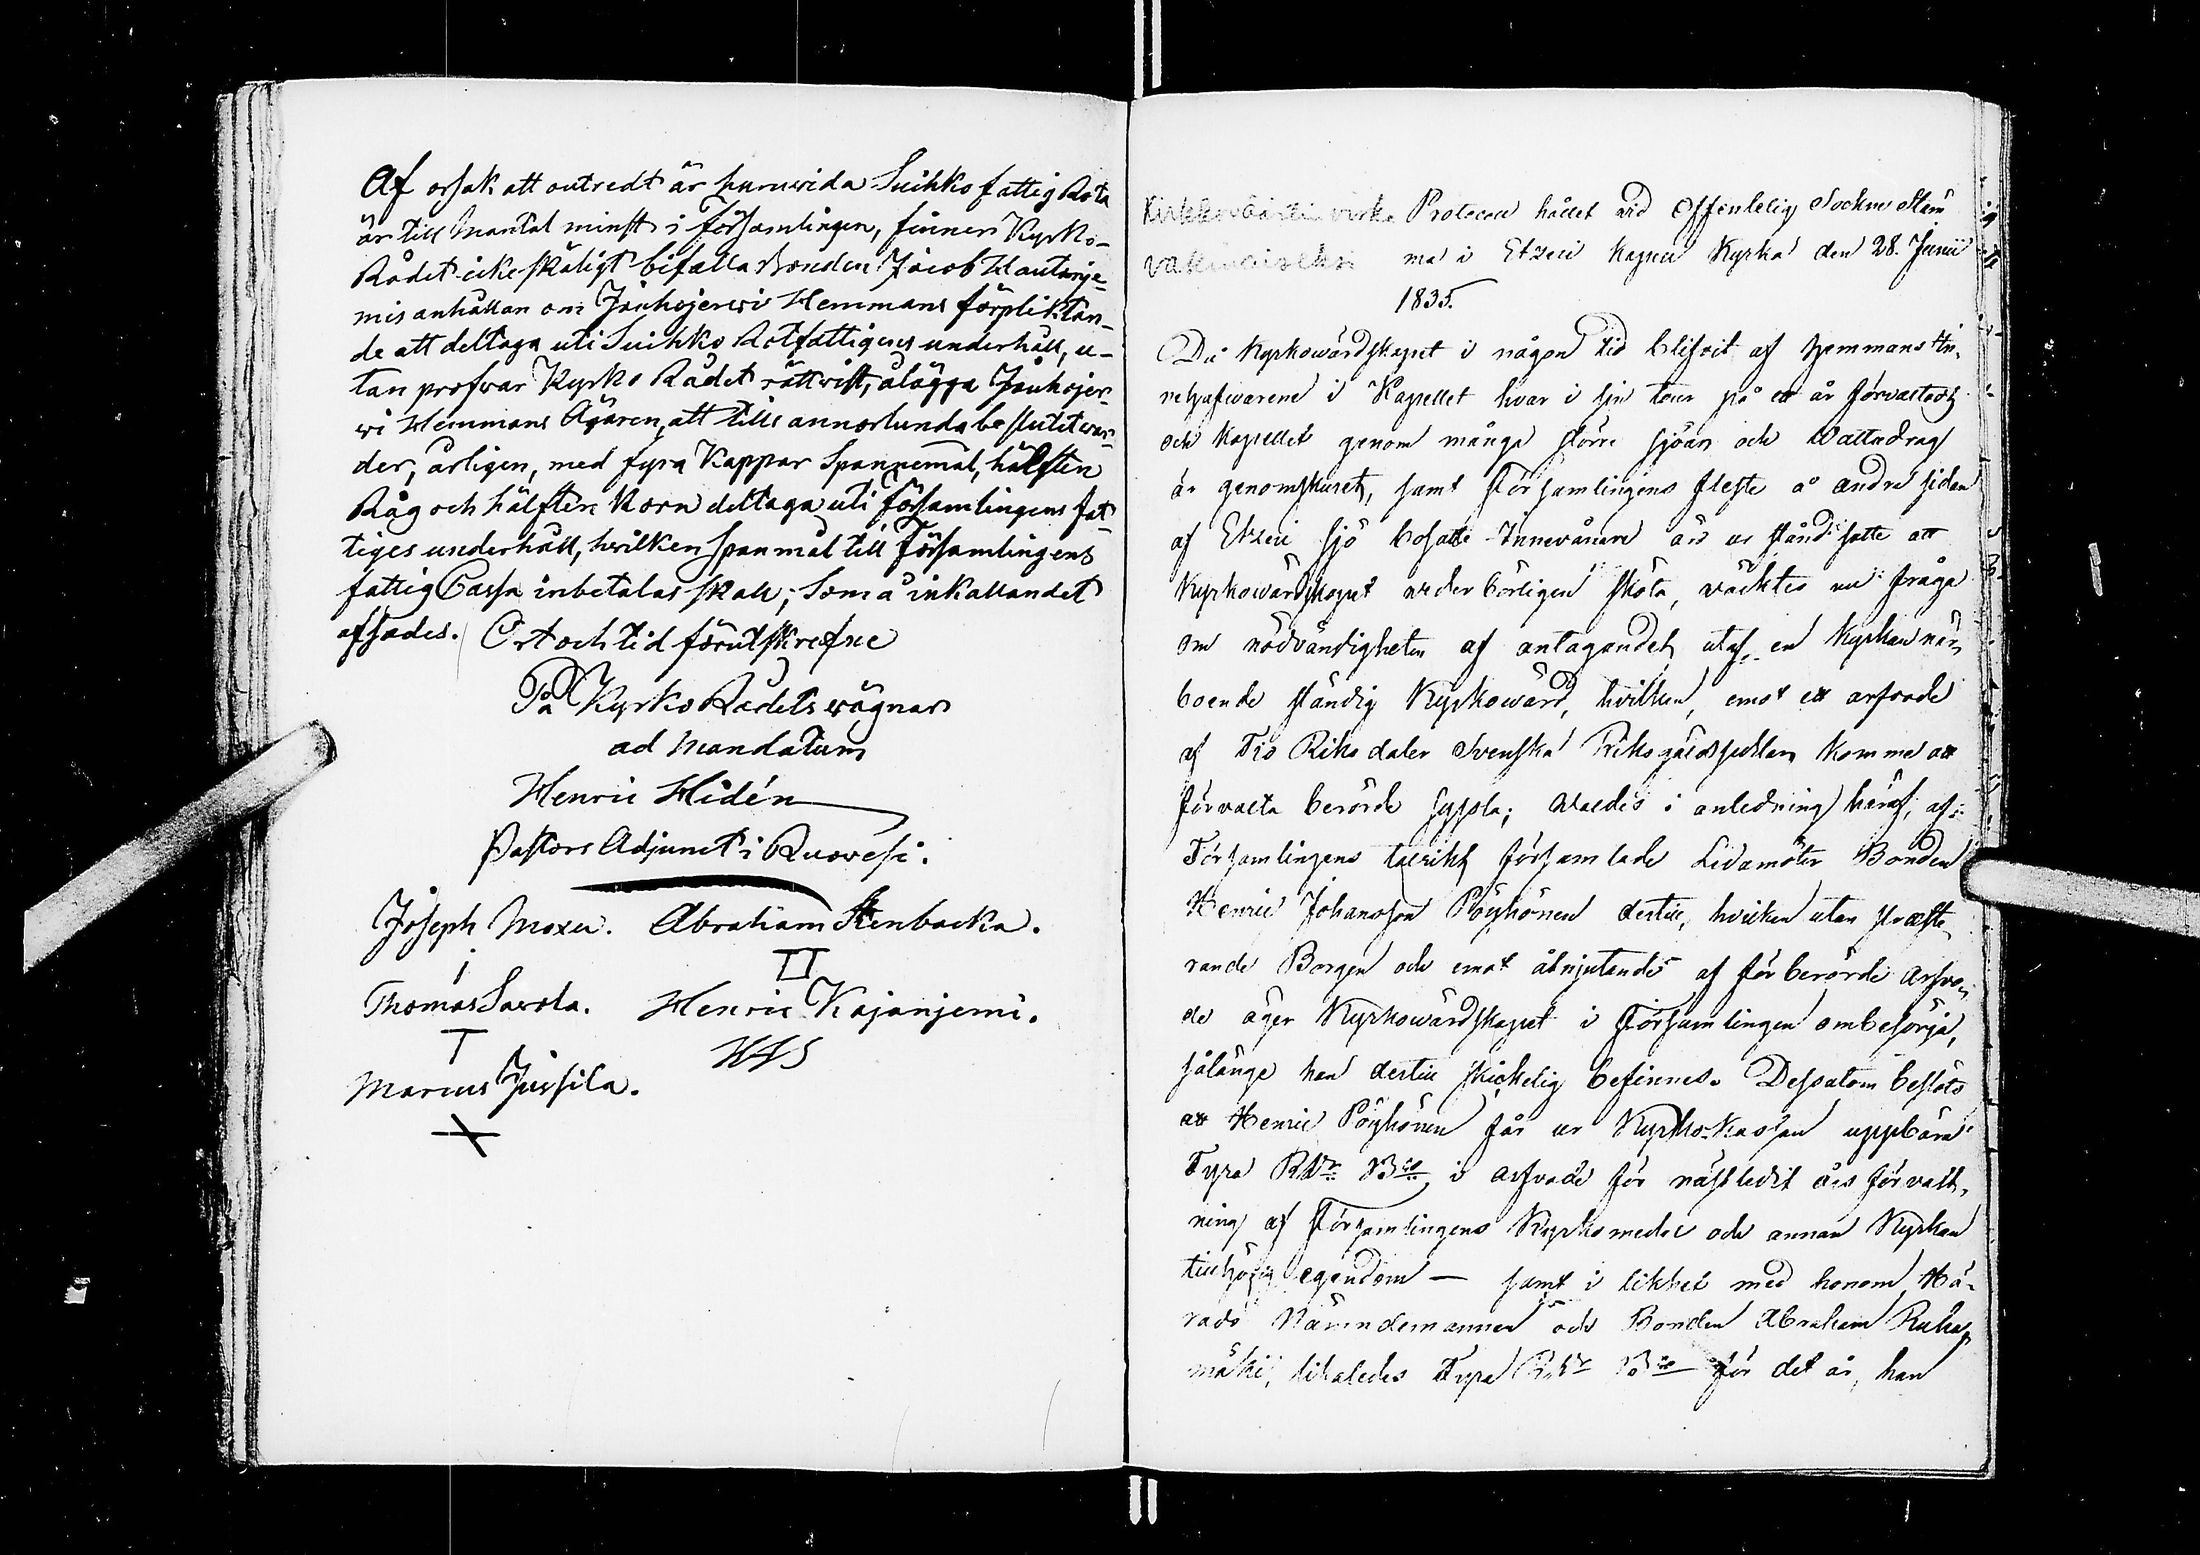 Af orsak att outredt är huruvida Suihko fattig Rota
är till Mantal minst i Församlingen, finner Kyrko-
Rådet icke skäligt bifalla Bonden Jacob Hautanje-
mis anhållan om Jouhojerwi Hemmans förpliktan-
de att deltaga uti Suihko Rotfattigens underhåll, u-
tan pröfvar Kyrko Rådet rättvist, ålägga Jouhojer-
wi Hemmans Ägaren, att tills annorlunda beslutit war-
der, årligen, med fyra Kappar Spannemål, hälften
Råg och hälften Korn deltaga uti församlingens fat-
tiges underhåll, hvilken Spanmål till Församlingens
fattig Cassa inbetalas skall; Som å inkallandet
afsades. Ort och tid förutskrefne
På Kyrko Rådets vägnar
ad mandatum
Henric Hidén
Pastors Adjunct i Ruovesi.
Joseph Moxu. Abraham Stenbacka.
I II
Thomas Savola. Henric Kajanjemi.
T HHS
Marcus Jussila.
X
Kirkkoväärtin virka Protocoll hållet vid Offentelig Sockne Stäm
vakinaiseksi ma i Etzeri Kapell Kyrka den 28. Junii
1835.
Då Kyrkowärdskapet i någon tid blifvit af Hemmans In-
nehafvarene i Kapellet hvar i sin tour på ett år förvaltadt
och Kapellet genom många större sjöar och Wattudrag
är genomskuret, samt Församlingens fleste å andra sidan
af Etzeri Sjö bosatte Innevånare äro ur stånd satte att
Kyrkowärdskapet vederbörligen sköta, väcktes nu fråga
om nödvändigheten af antagandet utaf en Kyrkan när-
boende ständig Kyrkowärd, hvilken, emot ett arfvode
af Tio Riksdaler Svenska Riksgäldssedlar komme att
förvalta berörde syssla; Valdes i anledning häraf, af
Församlingens talrikt församlade Ledamöter Bonden
Henric Johansson Pöyhönen dertill, hvilken utan præste-
rande Borgen och emot åtnjutande af förberörde arfvo-
de äger Kyrkowärdskapet i Församlingen ombesörja,
sålänge han dertill skickelig befinnes. Dessutom beslöts
att Henric Pöyhönen får ur Kyrko-Kassan uppbära
Fyra Rdr Bco i arfvode för nästledit års förvalt-
ning af Församlingens Kyrkomedel och annan Kyrkan
tillhörig egendom — samt i likhet med honom Hä-
rads Nämndemannen och Bonden Abraham Ruha
mäki, likaledes Fyra Rdr Bco för det år, han